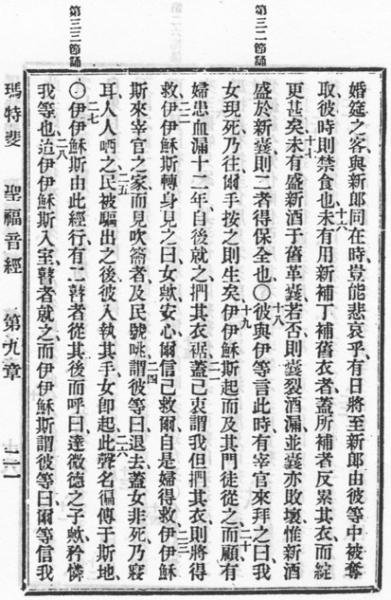 第三二節誦
第三三節誦
婚筵之客與新郎同在時豈能悲哀乎有日將至新郎由彼等中被奪
十六
取彼時則禁食也未有用新補丁補舊衣者蓋所補者反累其衣而綻
十七
更甚矣未有盛新酒于舊革囊若否則囊裂酒漏並囊亦敗壞惟新酒
十八
盛於新囊則二者得保全也〇彼與伊等言此時有宰官來拜之曰我
十九 二十
女現死乃往爾手按之則生矣伊伊穌斯起而及其門徒從之而顧有
二一
婦患血漏十二年自後就之捫其衣裾蓋已衷謂我但捫其衣則將得
二二 二三
救伊伊穌斯轉身見之曰女歟安心爾信已救爾自是婦得救伊伊穌
二四
斯來宰官之家而見吹籥者及民號咷謂彼等曰退去蓋女非死乃寢
二五 二六
耳人人哂之民被驅出之後彼入執其手女卽起此聲名徧傳于斯地
二七
〇伊伊穌斯由此經行有二瞽者從其後而呼曰達微德之子歟矜憐
二八
我等也迨伊伊穌斯入室瞽者就之而伊伊穌斯謂彼等曰爾等信我
瑪特斐 聖福音經 第九章 二一